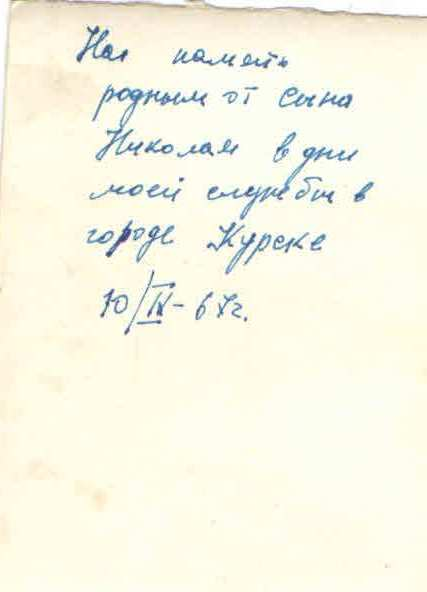 На память
родным от сына
Николая в дни
моей службы в
городе Курске
10/IV-67г.